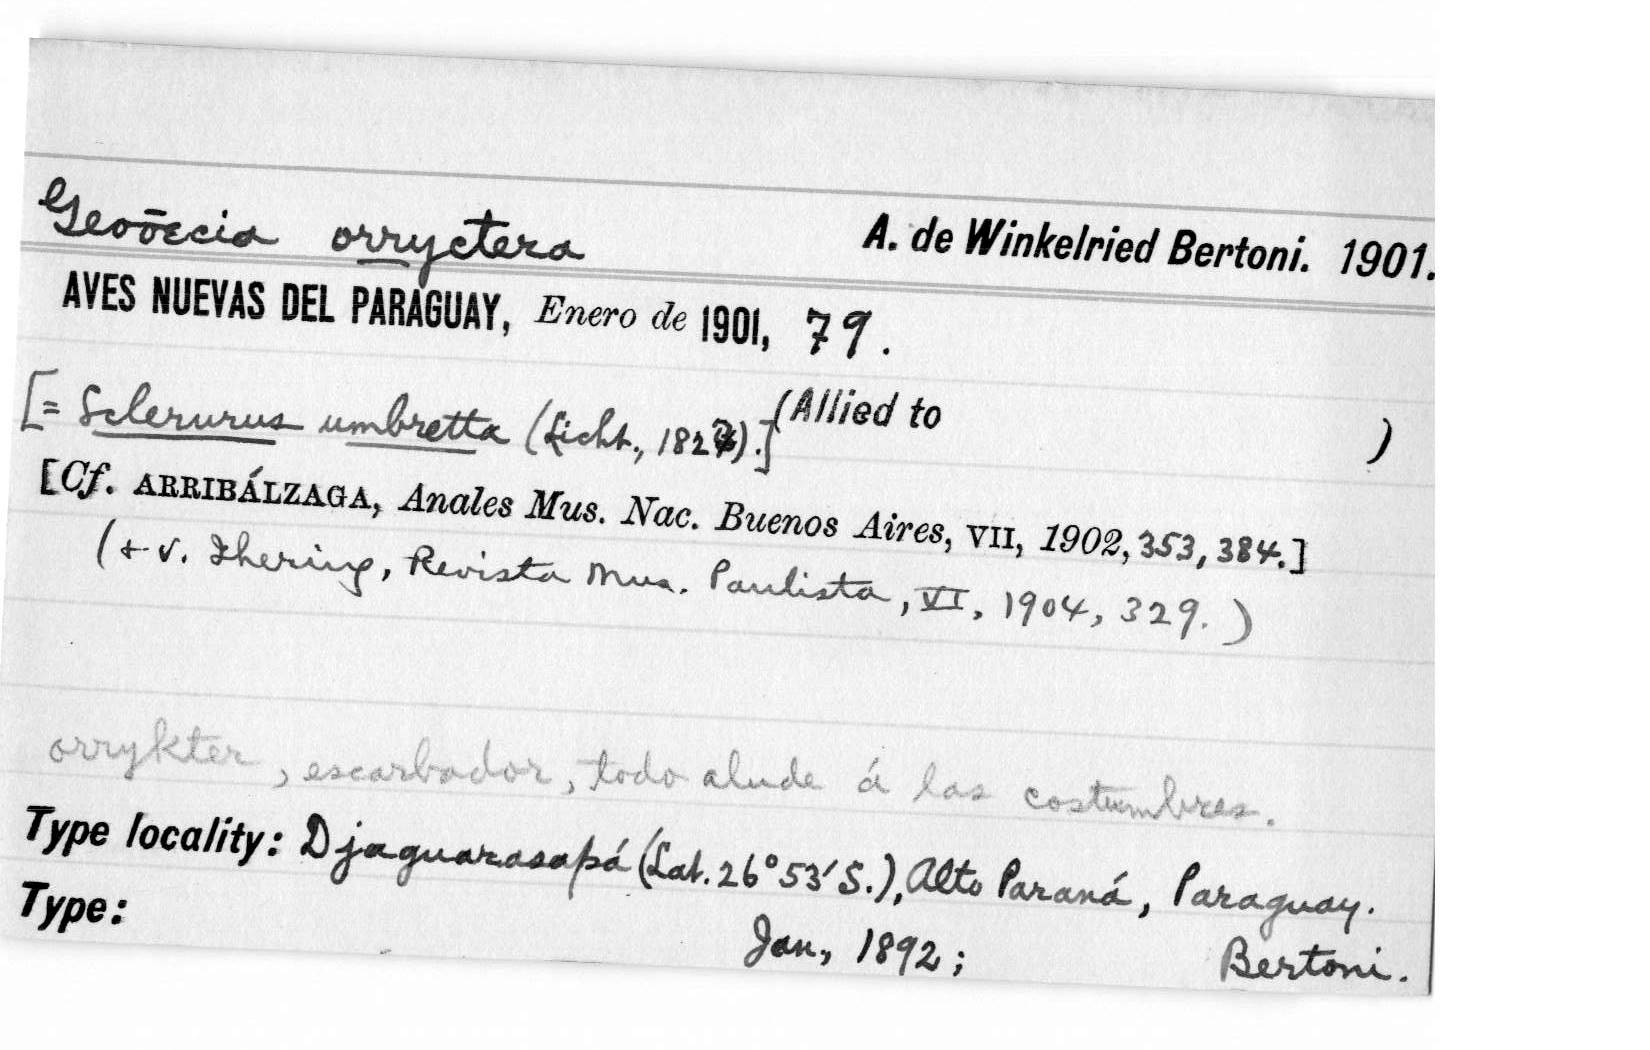 Geoōecia orryctera A. de Winkelried Bertoni. 1901.
AVES NUEVAS DEL PARAGUAY, Enero de 1901, 79.
[= Sclerurus umbretta (Licht., 182 ).] (Allied to )
[Cf. ARRIBÁLZAGA, Anales Mus. Nac. Buenos Aires, VII, 1902, 353, 384.]
(+ v. Ihering, Revista Mus. Paulista, VI, 1904, 329.)
orrykter, escarbador, todo alude á las costumbres.
Type locality: Djaguarasapá (Lat. 26° 53' S.), Alto Paraná, Paraguay.
Type: Jan., 1892; Bertoni.